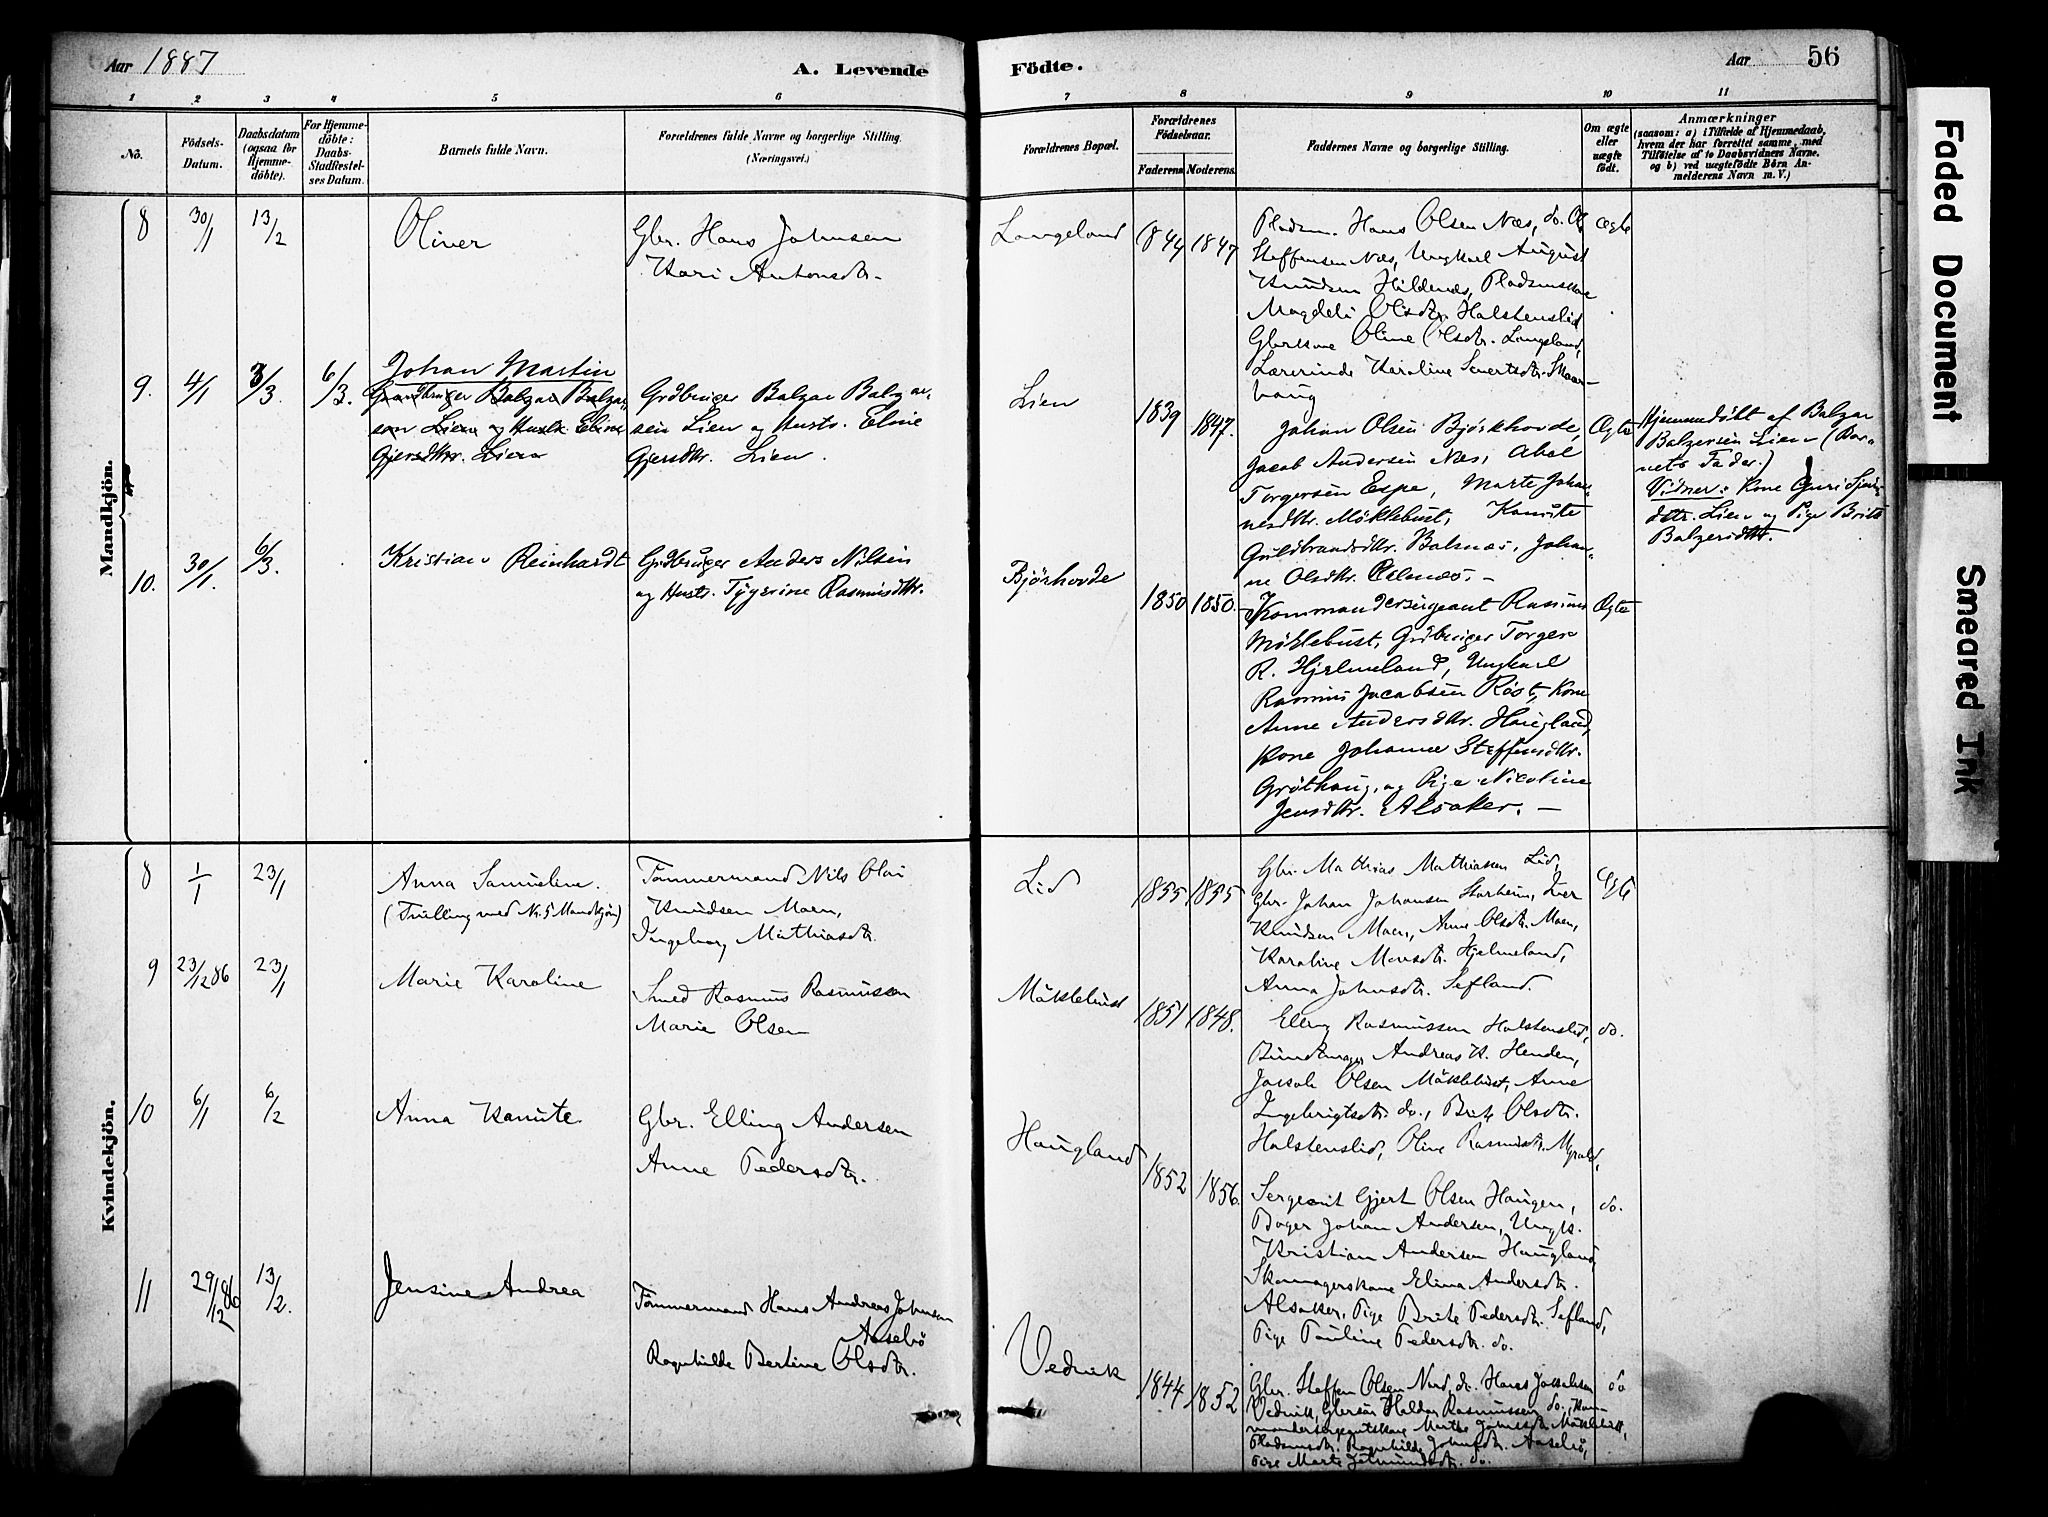 Aar 1887
A. Levende
Födte.
Aar
56
1 2 3 4 5 6 7 8 9 10 11
No.
Födsels-Datum.
Daabsdatum (ogsaa for Hjemmedöbte).
For Hjemmedöbte: Daabs-Stadfestelses Datum.
Barnets fulde Navn.
Forældrenes fulde Navne og borgerlige Stilling.
(Næringsvei.)
Forældrenes Bopæl.
Forældrenes Födselsaar.
Faderens Moderens.
Faddernes Navne og borgerlige Stilling.
Om ægte eller uægte födt.
Anmærkninger
(saasom: a) i Tilfælde af Hjemmedaab, hvem der har forrettet samme, med Tilföielse af to Daabsvidners Navne, og b) ved uægtefödte Börn Anmelderens Navn m. V.)
Mandkjön.
8 30/1 13/2 Oliver
Gbr. Hans Johnsen
Kari Antonsdtr.
Langeland 1844 1847
Pladsm. Hans Olsen Næs, do. Ol
Steffensen Næs, Ungkarl August
Knudsen Hildenæs, Pladsmskone
Magdeli Olsdtr. Halstenslid
Gbrkone Oline Olsdtr. Langeland,
Lærerinde Karoline Sivertsdtr. Skaar-
haug
ægte
9. 4/1 3/3. 6/3. Johan Martin
Gaardbruger Balzar Balzar-
sen Lien og Hustr. Eline
Gjersdtr. Lien
Grdbruger Balzar Balzar-
sen Lien og Hustr. Eline
Gjersdtr. Lien.
Lien 1839 1847.
Johan Olsen Bjørkhovde,
Jacob Andersen Næs, Abal
Torgersen Espe, Marte Johan-
nesdtr. Möklebust, Kanute
Guldbrandsdtr. Balsnæs, Johan-
ne Olsdtr. Eelnæs. -
Ægte
Hjemmedöbt af Balzar
Balzersen Lien (Bar-
nets Fader.)
Vidner: Kone Guri Sjur-
dstr. Lien og Pige Britt
Balzersdtr.
10. 30/1. 6/3. Kristian Reinhardt
Grdbruger Anders Nilsen
og Hustr. Tygerine Rasmusdtr.
Bjørhovde 1850 1850.
Kommandersergeant Rasmus
Möklebust, Grdbruger Torger
R. Hjelmeland, Ungkarl
Rasmus Jacobsen Röst, Kone
Anne Andersdtr. Haugland,
Kone Johanne Steffensdtr.
Gröthaug, og Pige Nicoline
Jensdtr. Alsaker. -
Ægte
Kvindekjön.
8 1/1 23/1 Anna Samueline.
(Tvilling med Nr. 5 Mandkjön)
Tömmermand Nils Olai
Knudsen Moen,
Ingeborg Mathiasdtr.
Lid 1855 1855
Gbr. Mathias Mathiassen Lid,
Gbr. Johan Johansen Storheim, Iver
Knudsen Moen, Anne Olsdtr. Moen,
Karoline Monsdtr. Hjelmeland,
Anna Johnsdtr. Sefland.
Ægte
9 23/12 86 23/1 Marie Karoline
Smed Rasmus Rasmussen
Marie Olsen
Mäklebust 1851 1848.
Elling Rasmussen Halstenslid,
Buntmager Andreas K. Henden,
Jakob Olsen Mäklebust, Anne
Ingebrigtsdtr. do., Brite Olsdtr.
Halstenslid, Oline Rasmusdtr. Myrold,
do.
10 6/1 6/2 Anna Kanute
Gbr. Elling Andersen
Anne Pedersdtr.
Haugland 1852 1856.
Sergeant Gjert Olsen Haugen,
Bager Johan Andersen, Ungk.
Kristian Andersen Haugland,
Skomagerskone Elina Andersdtr.
Alsaker, Pige Brite Pedersdtr. Sefland,
Pige Pauline Pedersdtr. do.
do.
11 29/12 86 13/2. Jensine Andrea
Tömmermand Hans Andreas Johnsen
Aasebö
Ragnhilde Bertine Olsdtr.
Vedvik 1844 1852
Gbr. Steffen Olsen Nord, do. Hans Jakobsen
Vedvik, Gbrsön Haldor Rasmussen do., Kom-
mandersergeantskone Marthe Johnsdtr. Mäklebust,
Pladsmdtr. Ragnhilde Johnsdtr. Aaselö,
Pige Marte Jetmundsdtr. do.
do
Faded Document
Smeared Ink